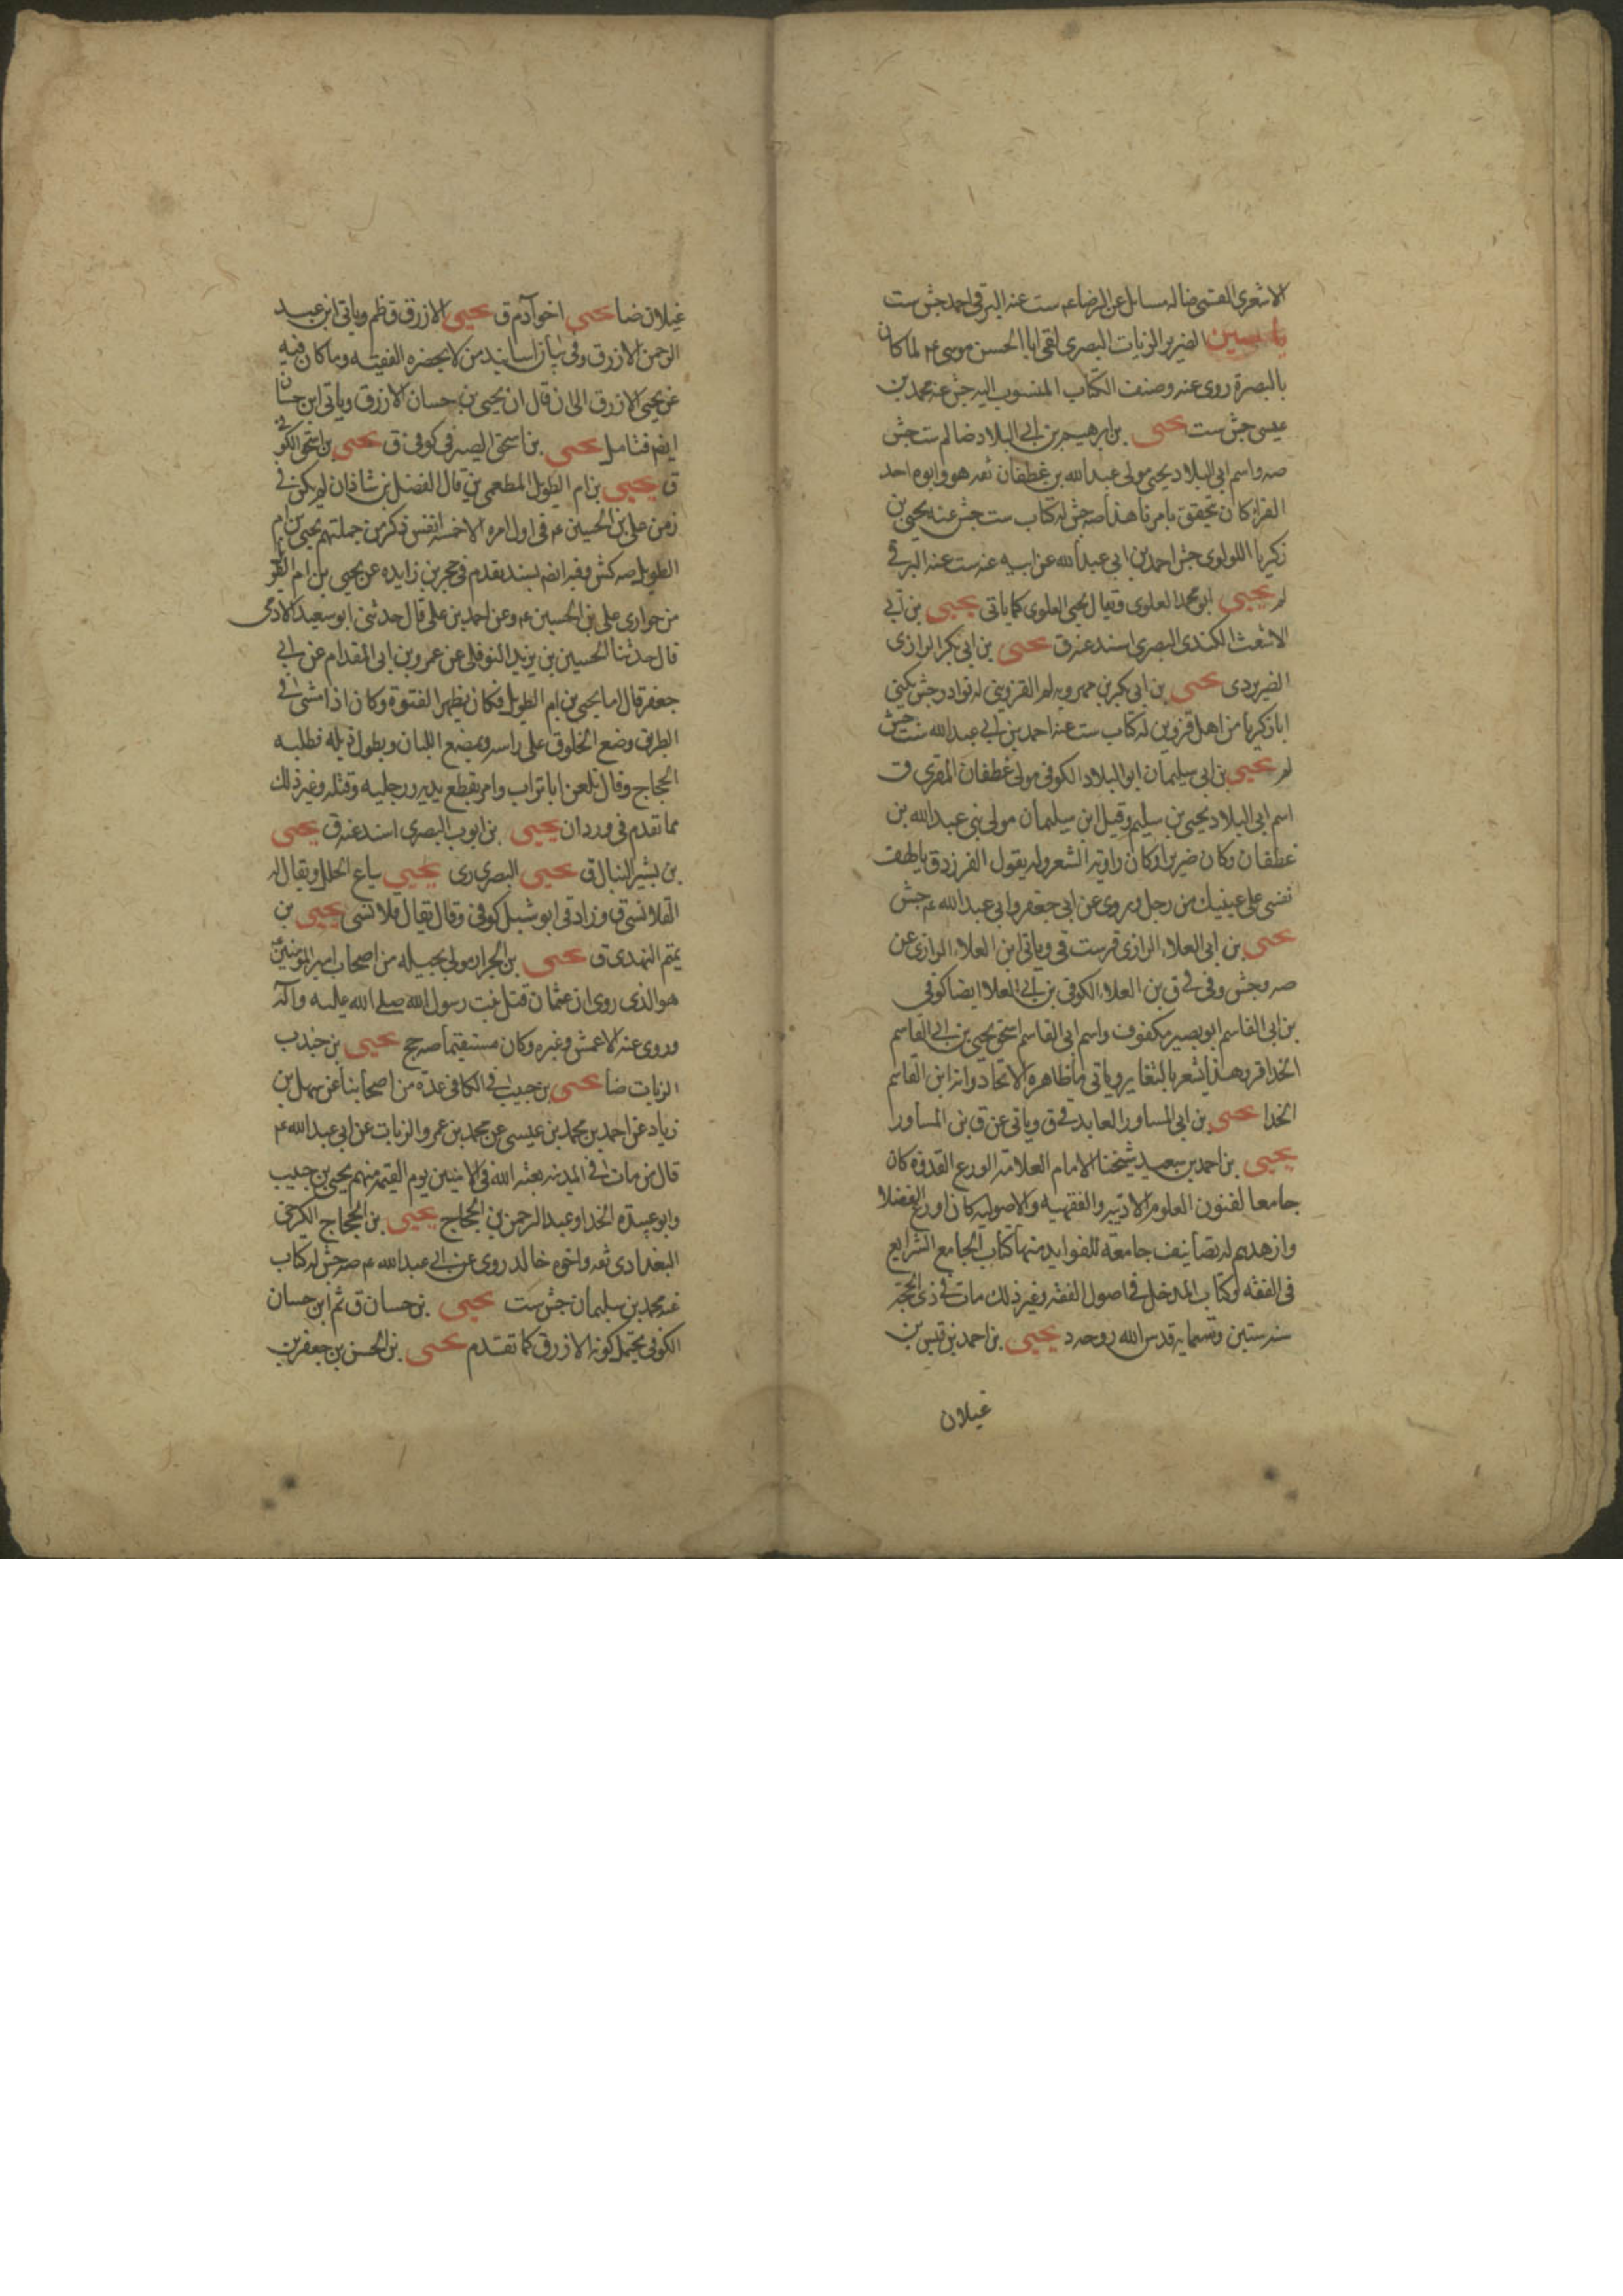 الاشعرى القمى ضا له مسائل عن الرضا عم ست عنه البرقى احمد جش ست
ياسين الضرير الزيات البصرى لقى ابا الحسن موسى عم لما كان
بالبصرة روى عنه وصنف الكتاب المنسوب اليه جش عنه محمد بن
عيسى جش ست يحيى بن ابرهيم بن ابى البلاد ضا لم ست جش
صه واسم ابى البلاد يحيى مولى عبد الله بن غطفان ثقه هو وابوه احد
القراء كان يتحقق بامرنا هذا صه جش له كتاب ست جش عنه يحيى بن
زكريا اللولوى جش احمد بن ابى عبد الله عن ابيه عنه ست عنه البرقى
لم يحيى ابو محمد العلوى ويقال يحيى العلوى كما ياتى يحيى بن ابى
الاشعث الكندى البصرى اسند عنه ق يحيى بن ابى بكر الرازى
الضرير دى يحيى بن ابى بكر بن مهرويه لم القزوينى له نوادر جش يكنى
ابا زكريا من اهل قزوين له كتاب ست عنه احمد بن ابى عبد الله ست جش
لم يحيى بن ابى سليمان ابو البلاد الكوفى مولى غطفان المقرى ق
اسم ابى البلاد يحيى بن سليم وقيل ابن سليمان مولى بنى عبد الله بن
غطفان وكان ضريرا وكان راوية الشعر وله يقول الفرزدق يا لهف
نفسى على عينيك من رجل ويروى عن ابى جعفر وابى عبد الله عم جش
يحيى بن ابى العلاء الرازى قر ست قى وياتى ابن العلاء الرازى عن
صه وجش وفى فى ق بن العلاء الكوفى بن ابى العلا ايضا كوفى
بن ابى القاسم ابو بصير مكفوف واسم ابى القاسم اسحق يحيى بن ابى القاسم
الحذا قر وهذا يشعر بالتغاير وياتى ما ظاهره الاتحاد وانه ابن القاسم
الحذا يحيى بن ابى المساور العابد فى ق وياتى عن ق بن المساور
يحيى بن احمد بن سعيد شيخنا الامام العلامة الورع القدوه كان
جامعا لفنون العلوم الادبيه والفقهيه والاصوليه كان اورع الفضلا
وازهدهم له تصانيف جامعة للفوايد منها كتاب الجامع الشرايع
فى الفقه وكتاب المدخل فى اصول الفقه وغير ذلك مات فى ذى الحجة
سنه ستين وتسمايه قدس الله روحه د يحيى بن احمد بن قيس بن
غيلان
غيلان ضا يحيى اخو آدم ق يحيى الازرق ق ظم وياتى ابن عبد
الرحمن الازرق وفى بيان اسانيد من لا يحضره الفقيه وما كان فيه
عن يحيى الازرق الى ان قال ان يحيى بن حسان الازرق وياتى ابن حسان
ايضا فتامل يحيى بن اسحق الصيرفى كوفى ق يحيى بن اسحق الكوفى
ق يحيى بن ام الطويل المطعمى ين قال الفضل بن شاذان لم يكن فى
زمن على بن الحسين عم فى اول امره الا خمسة انفس ذكر من جملتهم يحيى بن ام
الطويل صه كش وفيه ايضا بسند تقدم فى حجر بن زايده عن يحيى بن ام الطويل
من حوارى على بن الحسين عم وعن احمد بن على قال حدثنى ابو سعيد الادمى
قال حدثنا الحسين بن يزيد النوفلى عن عمرو بن ابى المقدام عن ابى
جعفر قال اما يحيى بن ام الطويل فكان يظهر الفتوة وكان اذا مشى فى
الطريق وضع الخلوق على راسه ويمضغ اللبان ويطول ذيله فطلبه
الحجاج وقال تلعن ابا تراب وامر بقطع يديه ورجليه وقتله وغير ذلك
مما تقدم فى وردان يحيى بن ايوب البصرى اسند عنه ق يحيى
بن بشير النبال ق يحيى البصرى رى يحيى بياع الحلل ويقال له
القلانسى ق وزاد قى ابو شبل كوفى وقال يقال قلانسى يحيى بن
يتم النهدى ق يحيى بن الجرار مولى بجيله من اصحاب امير المومنين عم
هو الذى روى ان عثمان قتل بنت رسول الله صلى الله عليه وآله
وروى عنه الاعمش وغيره وكان مستقيما صه جح يحيى بن جندب
الزيات ضا يحيى بن حبيب فى الكافى عدة من اصحابنا عن سهل بن
زياد عن احمد بن محمد بن عيسى عن محمد بن عمرو الزيات عن ابى عبد الله عم
قال من مات فى المدينه بعثه الله فى الامنين يوم القيمه منهم يحيى بن حبيب
وابو عبيدة الحذا وعبد الرحمن بن الحجاج يحيى بن الحجاج الكرخى
البغدادى ثقه واخوه خالد روى عن ابى عبد الله عم صه جش له كتاب
عنه محمد بن سليمان جش ست يحيى بن حسان ق ثم ابن حسان
الكوفى يحتمل كونه الازرق كما تقدم يحيى بن الحسن بن جعفر بن